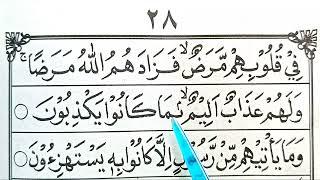 ٢٨
فِيْ قُلُوْبِهِمْ مَّرَضٌ ۙ فَزَادَهُمُ اللّٰهُ مَرَضًا ۚ
وَلَهُمْ عَذَابٌ اَلِيْمٌ ۙ بِمَا كَانُوْا يَكْذِبُوْنَ ○
وَمَا يَأْتِيْهِمْ مِّنْ رَّسُوْلٍ اِلَّا كَانُوْا بِهٖ يَسْتَهْزِءُوْنَ ○